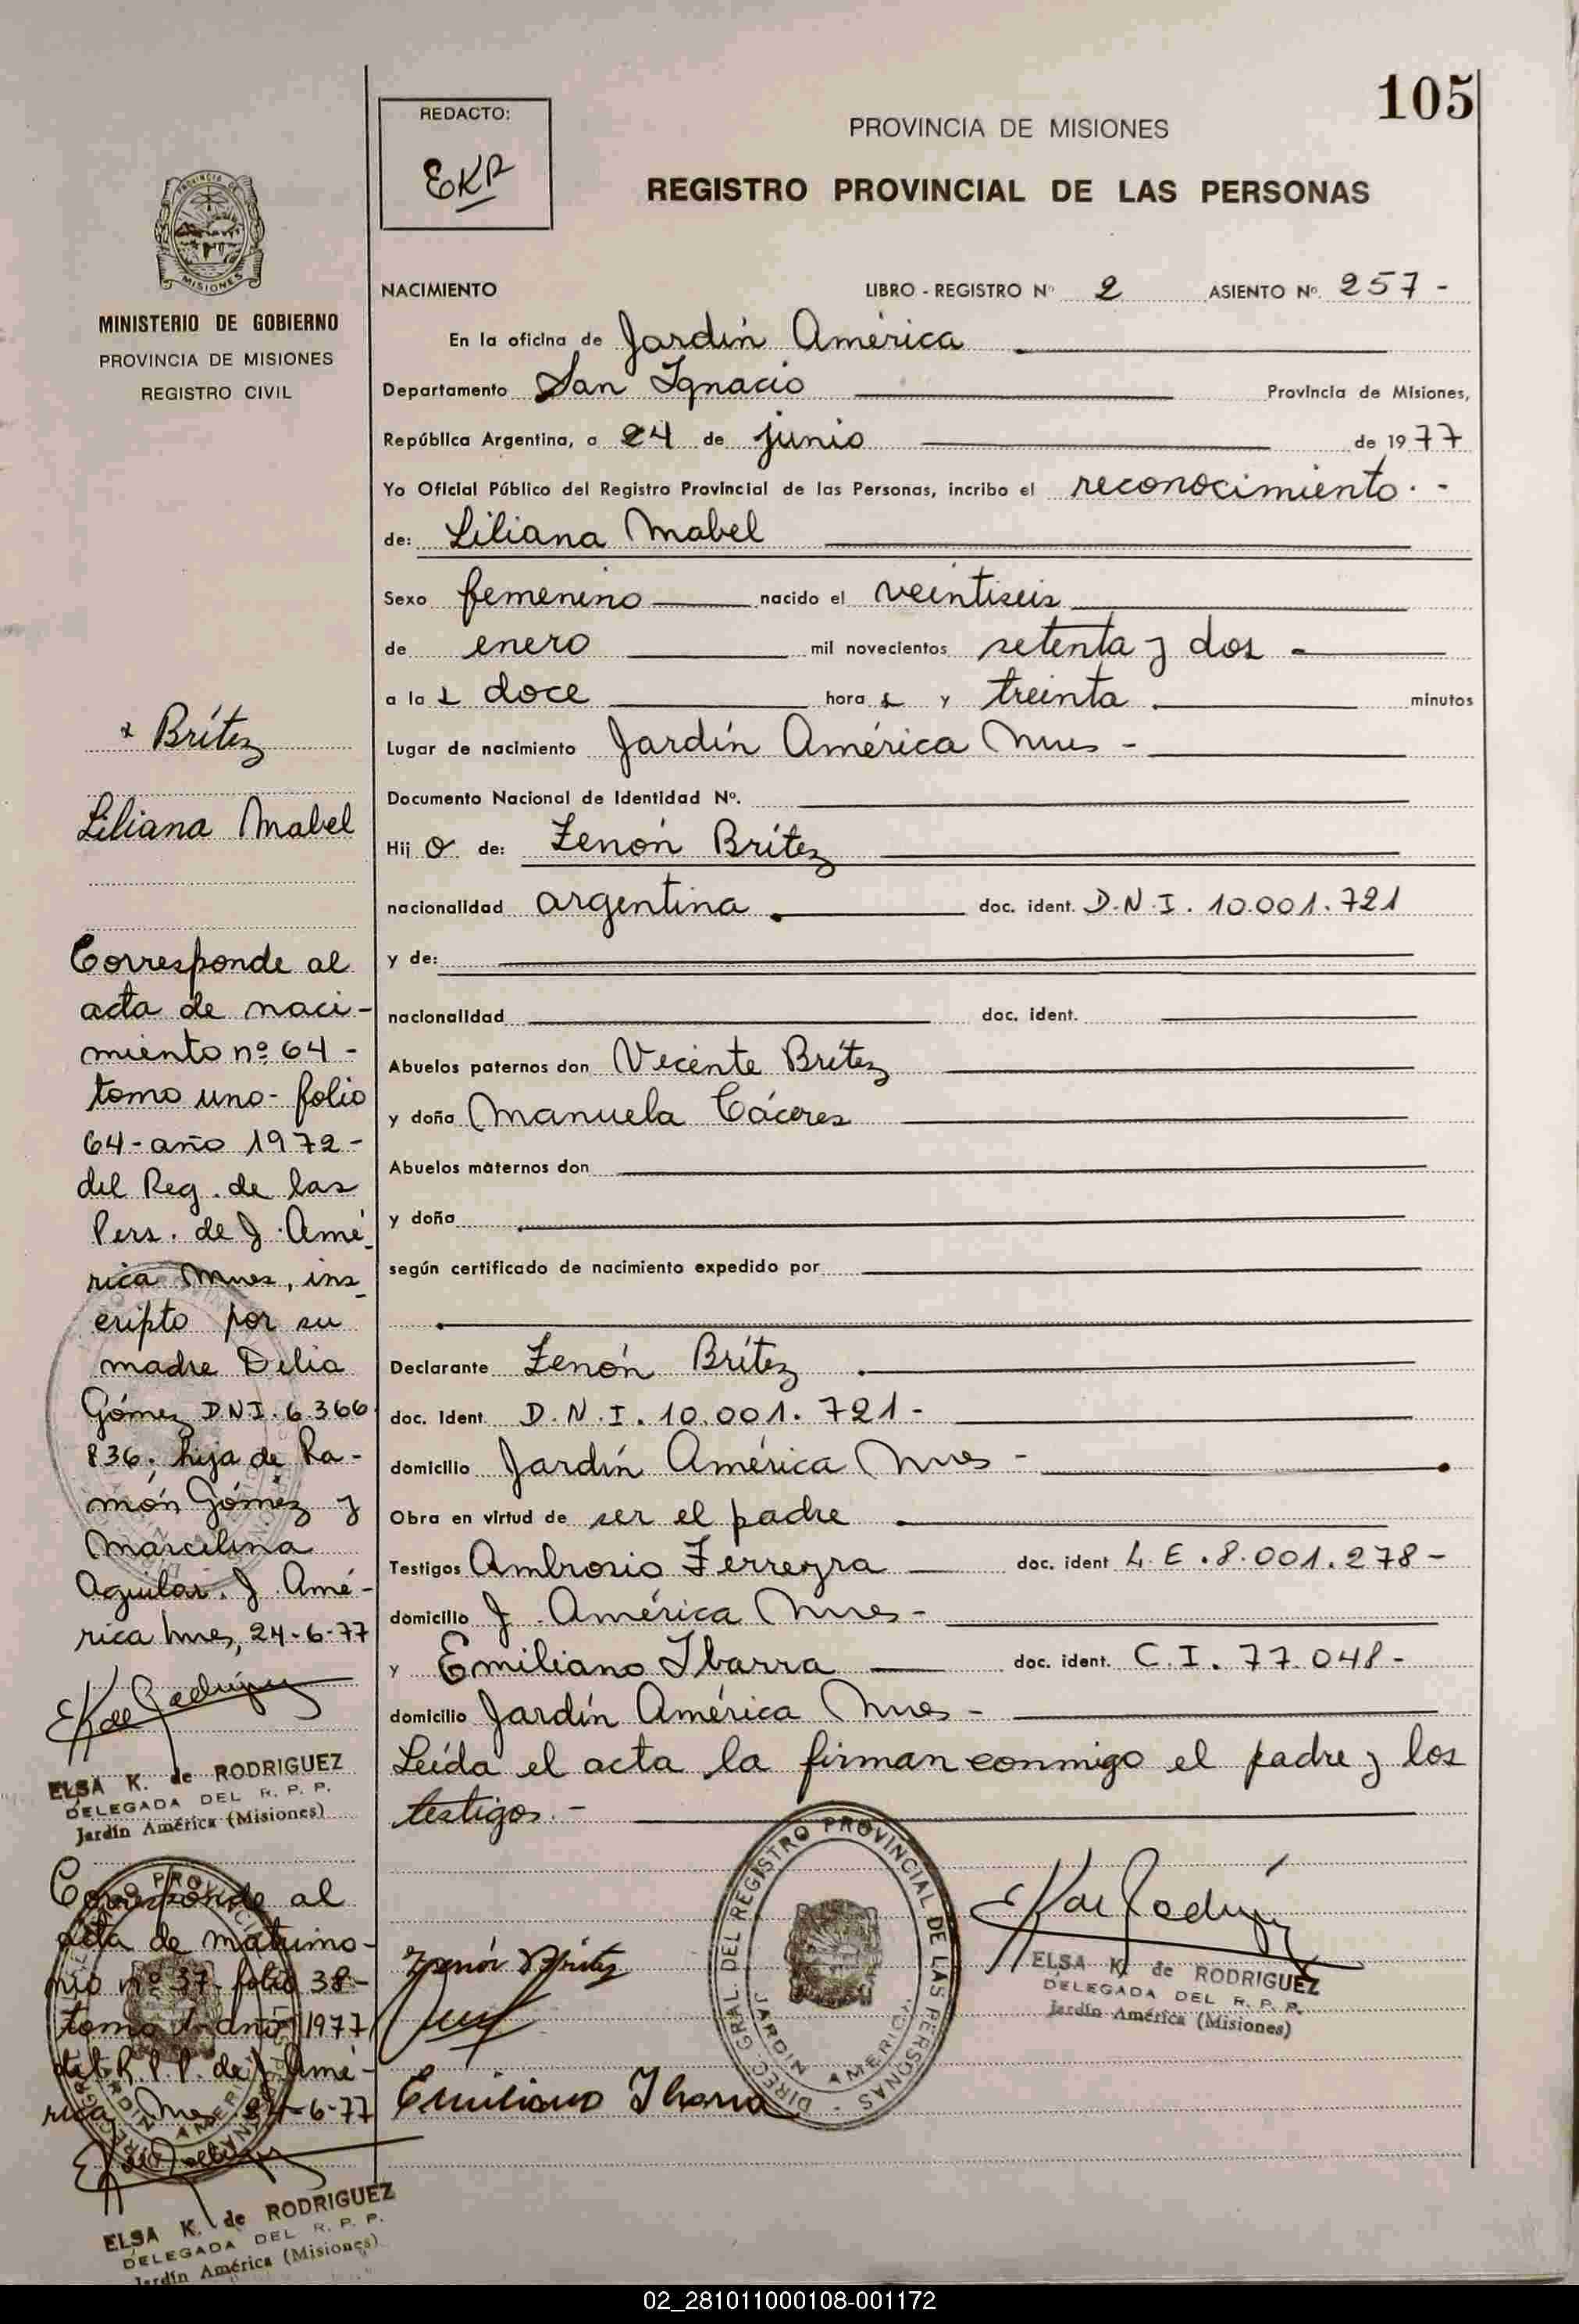 105
REDACTO:
EKR
PROVINCIA DE MISIONES
REGISTRO PROVINCIAL DE LAS PERSONAS
PROVINCIA DE
MISIONES
MINISTERIO DE GOBIERNO
PROVINCIA DE MISIONES
REGISTRO CIVIL
NACIMIENTO LIBRO - REGISTRO Nº 2 ASIENTO Nº 257 -
En la oficina de Jardín América
Departamento San Ignacio Provincia de Misiones,
República Argentina, a 24 de junio de 1977
Yo Oficial Público del Registro Provincial de las Personas, incribo el reconocimiento. -
de: Liliana Mabel
Sexo femenino nacido el veintiseis
de enero mil novecientos setenta y dos -
a las doce horas y treinta minutos
Lugar de nacimiento Jardín América Mnes -
Documento Nacional de Identidad Nº.
Hij o de: Zenón Brítez
nacionalidad argentina doc. ident. D.N.I. 10.001.721
y de:
nacionalidad doc. ident.
Abuelos paternos don Vicente Brítez
y doña Manuela Cáceres
Abuelos maternos don
y doña
según certificado de nacimiento expedido por
Declarante Zenón Brítez
doc. Ident. D.N.I. 10.001.721 -
domicilio Jardín América Mnes -
Obra en virtud de ser el padre
Testigos Ambrosio Ferreyra doc. ident L.E. 8.001.278 -
domicilio J. América Mnes -
y Emiliano Ibarra doc. ident. C.I. 77.048 -
domicilio Jardín América Mnes -
Leída el acta la firman conmigo el padre y los
testigos. -
Zenón Brítez
Emiliano Ibarra
DIREC. GRAL. DEL REGISTRO PROVINCIAL DE LAS PERSONAS
JARDIN AMERICA
EK de Rodríguez
ELSA K. de RODRIGUEZ
DELEGADA DEL R. P. P.
Jardín América (Misiones)
Brítez
Liliana Mabel
Corresponde al
acta de naci-
miento nº 64 -
tomo uno - folio
64 - año 1972 -
del Reg. de las
Pers. de J. Amé-
rica Mnes, ins-
cripto por su
madre Delia
Gómez DNI. 6.366
836. hija de Ra-
món Gómez y
Marcelina
Aguilar. J. Amé-
rica Mnes, 24-6-77
EK de Rodríguez
ELSA K. de RODRIGUEZ
DELEGADA DEL R. P. P.
Jardín América (Misiones)
Corresponde al
acta de matrimo-
nio nº 37 - folio 38 -
tomo 1 - año 1977
del R.P.P. de J. Amé-
rica Mnes 24-6-77
ELSA K. de RODRIGUEZ
DELEGADA DEL R. P. P.
Jardín América (Misiones)
02_281011000108-001172